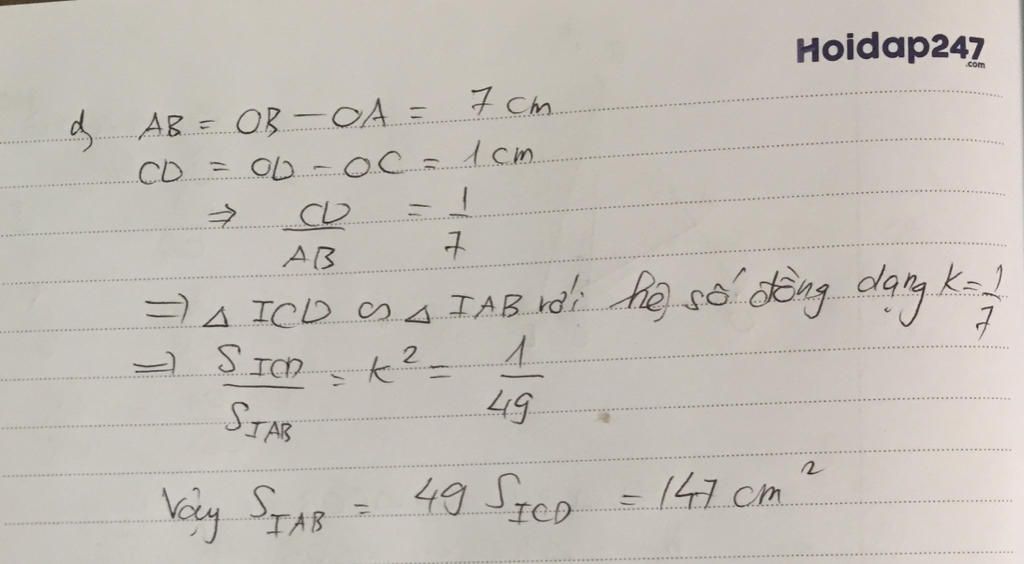 Hoidap247
.com
d, AB = OB - OA = 7 cm
CD = OD - OC = 1 cm
⇒ CD/AB = 1/7
⇒ △ ICD ∽ △ IAB với hệ số đồng dạng k = 1/7
⇒ S_ICD/S_IAB = k² = 1/49
Vậy S_IAB = 49 S_ICD = 147 cm²